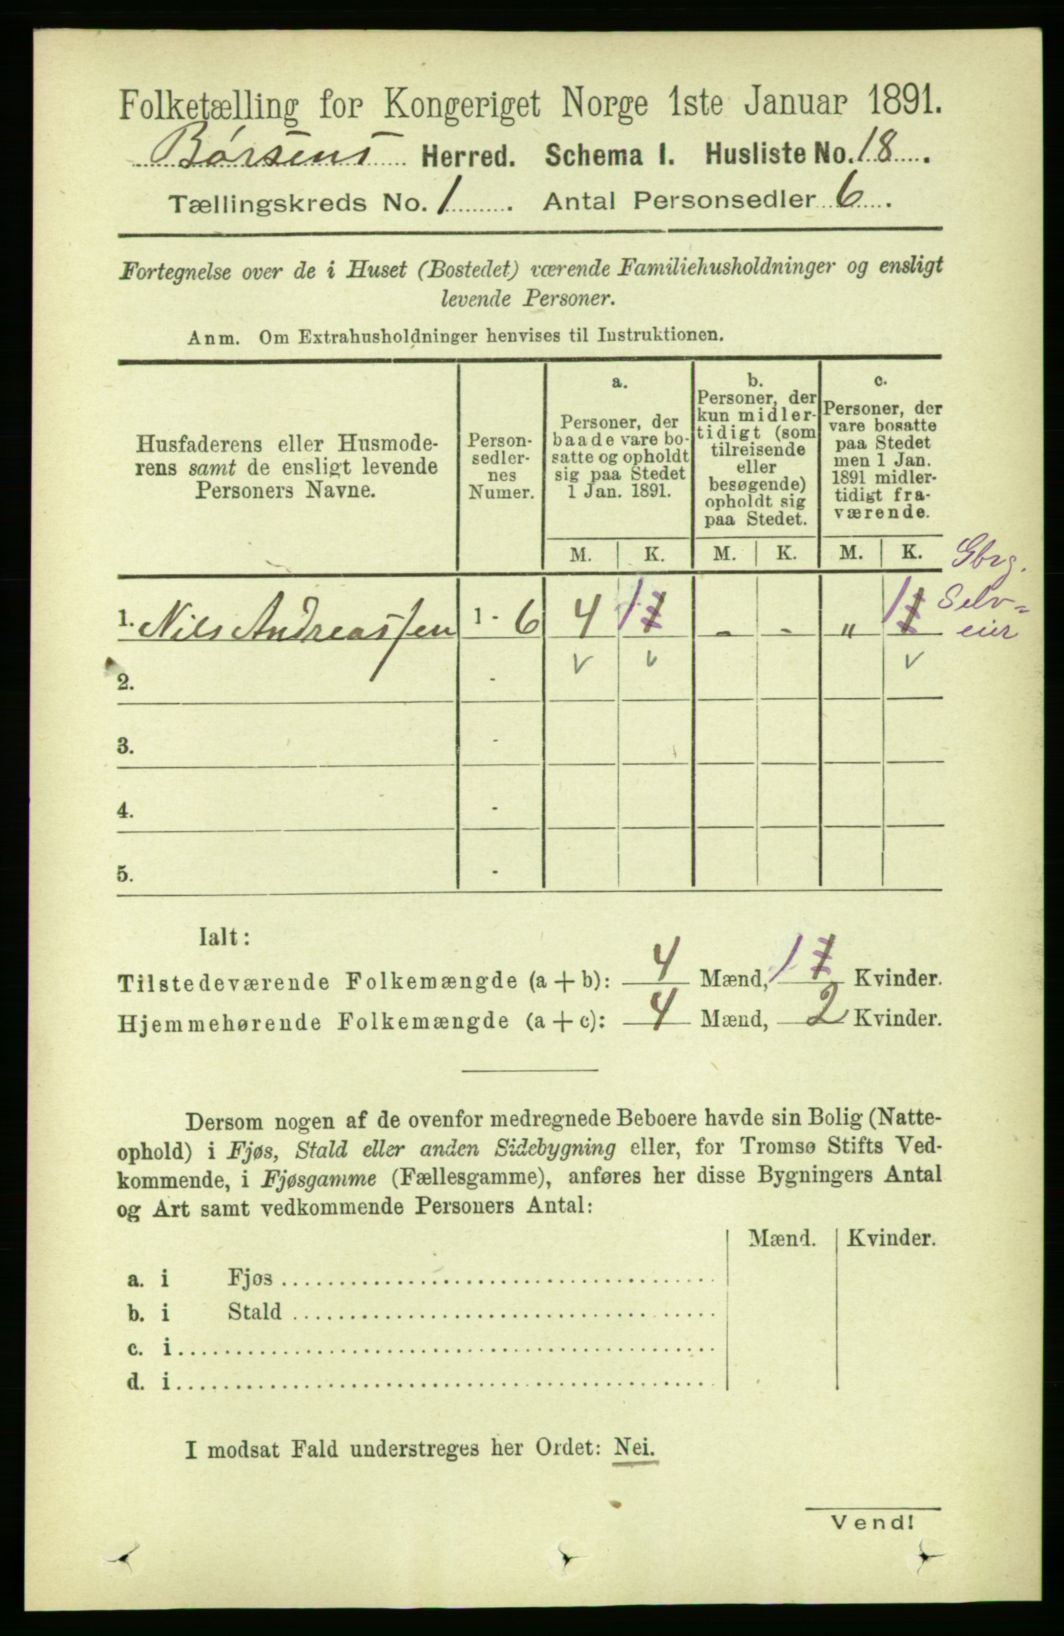 Folketælling for Kongeriget Norge 1ste Januar 1891.
Børsens Herred. Schema I. Husliste No. 18.
Tællingskreds No. 1. Antal Personsedler 6.
Fortegnelse over de i Huset (Bostedet) værende Familiehusholdninger og ensligt
levende Personer.
Anm. Om Extrahusholdninger henvises til Instruktionen.
Husfaderens eller Husmode-
rens samt de ensligt levende
Personers Navne.
Person-
sedler-
nes
Numer.
a.
Personer, der
baade vare bo-
satte og opholdt
sig paa Stedet
1 Jan. 1891.
b.
Personer, der
kun midler-
tidigt (som
tilreisende
eller
besøgende)
opholdt sig
paa Stedet.
c.
Personer, der
vare bosatte
paa Stedet
men 1 Jan.
1891 midler-
tidigt fra-
værende.
M. K. M. K. M. K.
Gbrg.
Selv-
eier
1. Nils Andreassen 1 - 6 4 1 - - „ 1
2. -
3. -
4. -
5. -
Ialt:
Tilstedeværende Folkemængde (a + b): 4 Mænd, 1 Kvinder.
Hjemmehørende Folkemængde (a + c): 4 Mænd, 2 Kvinder.
Dersom nogen af de ovenfor medregnede Beboere havde sin Bolig (Natte-
ophold) i Fjøs, Stald eller anden Sidebygning eller, for Tromsø Stifts Ved-
kommende, i Fjøsgamme (Fællesgamme), anføres her disse Bygningers Antal
og Art samt vedkommende Personers Antal:
Mænd. Kvinder.
a. i Fjøs
b. i Stald
c. i
d. i
I modsat Fald understreges her Ordet: Nei.
Vend!